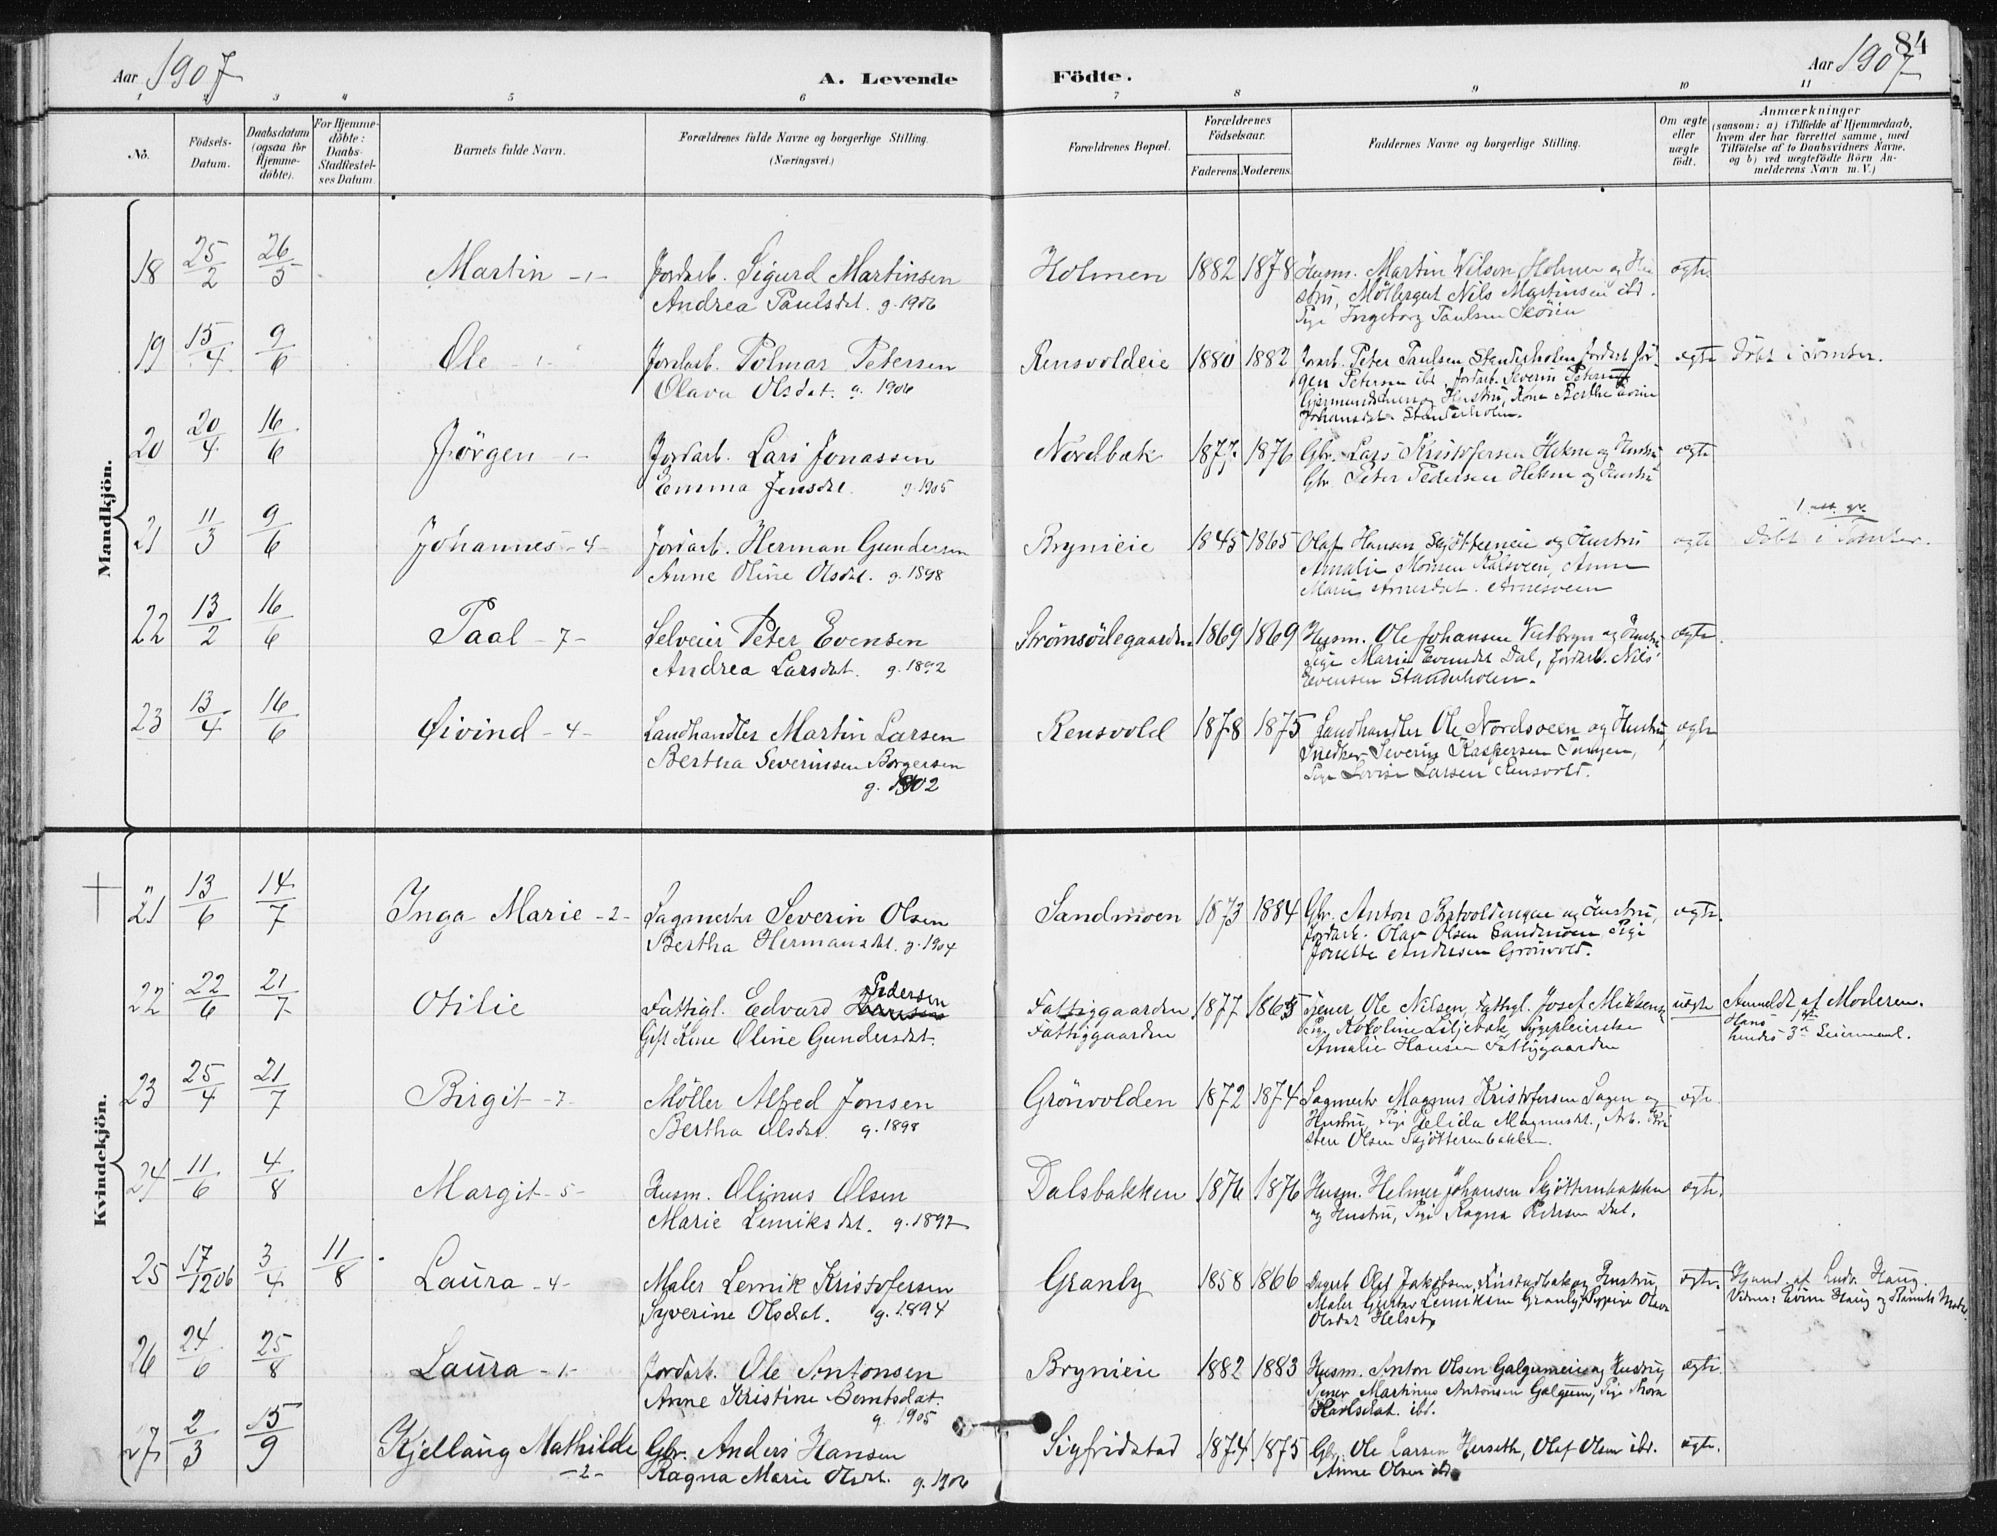 84
Aar 1907
A. Levende Födte.
Aar 1907
1 2 3 4 5 6 7 8 9 10 11
No.
Födsels-Datum.
Daabsdatum (ogsaa for Hjemmedöbte).
For Hjemmedöbte: Daabs-Stadfæstelses Datum.
Barnets fulde Navn.
Forældrenes fulde Navne og borgerlige Stilling. (Næringsvei.)
Forældrenes Bopæl.
Forældrenes Födselsaar.
Faderens. Moderens.
Faddernes Navne og borgerlige Stilling.
Om ægte eller uægte födt.
Anmærkninger
(saasom: a) i Tilfælde af Hjemmedaab, hvem der har forrettet samme, med Tilföielse af to Daabsvidners Navne, og b) ved uægtefödte Börn Anmelderens Navn m. V.)
Mandkjön.
18 25/2 26/5 Martin -1- Jordarb. Sigurd Martinsen Holmen 1882 1878 Husm. Martin Nilsen Holmen og Hu- ægte
Andrea Paulsdat. g. 1906 stru, Möllergut Nils Martinsen ibd.
Pige Ingeborg Paulsen Sköien
19 15/4 9/6 Ole -1- Jordarb. Polmar Petersen Rensvoldeie 1880 1882 Jordarb. Peter Paulsen Standerholen, Jordarb. Jör- ægte Döbt i Tömter.
Olava Olsdat. g. 1906 gen Petersen ibd, Jordarb. Severin Petersen
og Hustru, Kone Berthe
Johansdat. Standerholen.
20 20/4 16/6 Jörgen -1- Jordarb. Lars Jonassen Nordbak 1877 1876 Gbr. Lars Kristofersen Hekne og Hustru ægte
Emma Jensdat. g. 1905 Gbr. Peter Pedersen Hekne og Hustru
21 11/3 9/6 Johannes -4- Jordarb. Herman Gundersen Brynieie 1845 1865 Olaf Hansen Skjötterneie og Hustru ægte Döbt i Tömter.
Anne Oline Olsdat. g. 1898 Amalie Monsen Karsveen, Anne
Marie Arnesdat. Arnesveen
22 13/2 16/6 Paal -7- Selveier Peter Evensen Strömsöilegaarden 1869 1869 Husm. Ole Johansen Vietbryn og Hustru ægte.
Andrea Larsdat. g. 1892 Pige Marie Evensdat Dal, Jordarb. Nils
Evensen Standerholen.
23 13/4 16/6 Øivind -4- Landhandler Martin Larsen Rensvold 1878 1875 Landhandler Ole Nordsveen og Hustru, ægte
Bertha Severinsen Borgersen Snedker Severin Kaspersen Tangen,
g. 1902 Pige Lovise Larsen Rensvold.
Kvindekjön.
21 13/6 14/7 Inga Marie -2- Sagmester Severin Olsen Sandmoen 1873 1884 Gbr. Anton Botvoldengen og Hustru, ægte.
Bertha Hermansdat. g. 1904 Jordarb. Olav Olsen Sandmoen, Pige
Josette Andresen Grönvold.
22 22/6 21/7 Otilie Fattigl. Edvard Pedersen Fattiggaarden 1877 1865 Tjener Ole Nilsen, Fattigl. Josef Mikkelsen uægte Anmeldt af Moderen.
Gift Kone Oline Gundersdat. Fattiggaarden Pige Karoline Liljebak, Sygepleierske Hans 1ste
Amalie Hansen Fattiggaarden hendes 3die Leiermaal.
23 25/4 21/7 Birgit -7- Möller Alfred Jonsen Grönvolden 1872 1874 Sagmester Magnus Kristofersen Sagen og ægte
Bertha Olsdat. g. 1898 Hustru, Pige Helida Magnusdat., Arb. Kri-
sten Olsen Skjötterenbakken.
24 11/6 4/8 Margit -5- Husm. Olinus Olsen Dalsbakken 1876 1876 Husm. Helmer Johansen Skjötternbakken ægte.
Marie Lemiksdat. g. 1897 og Hustru, Pige Ragna Petersen Dal.
25 17/1206 3/4 11/8 Laura -4- Maler Lemik Kristofersen Granly 1858 1866 Dagarb. Olaf Jakobsen Finstadbak og Hustru, ægte. Hjemd. af Ludv. Haug.
Syverine Olsdat. g. 1894 Maler Gustav Lemiksen Granly, Sypige Olava Vidner: Evine Haug og Barnets Moder
Olsdat Helset
26 24/6 25/8 Laura -1- Jordarb. Ole Antonsen Brynieie 1882 1883 Husm. Anton Olsen Galgumeie og Hustru, ægte
Anne Kristine Berntsdat. Tjener Martinus Antonsen Galgum, Pige Thora
g. 1905 Karlsdat. ibd.
27 2/3 15/9 Kjellaug Mathilde Gbr. Anders Hansen Sigfridstad 1874 1875 Gbr. Ole Larsen Herseth, Olaf Olsen ibd. ægte.
-2- Ragna Marie Olsdat. g. 1906 Anne Olsen ibd